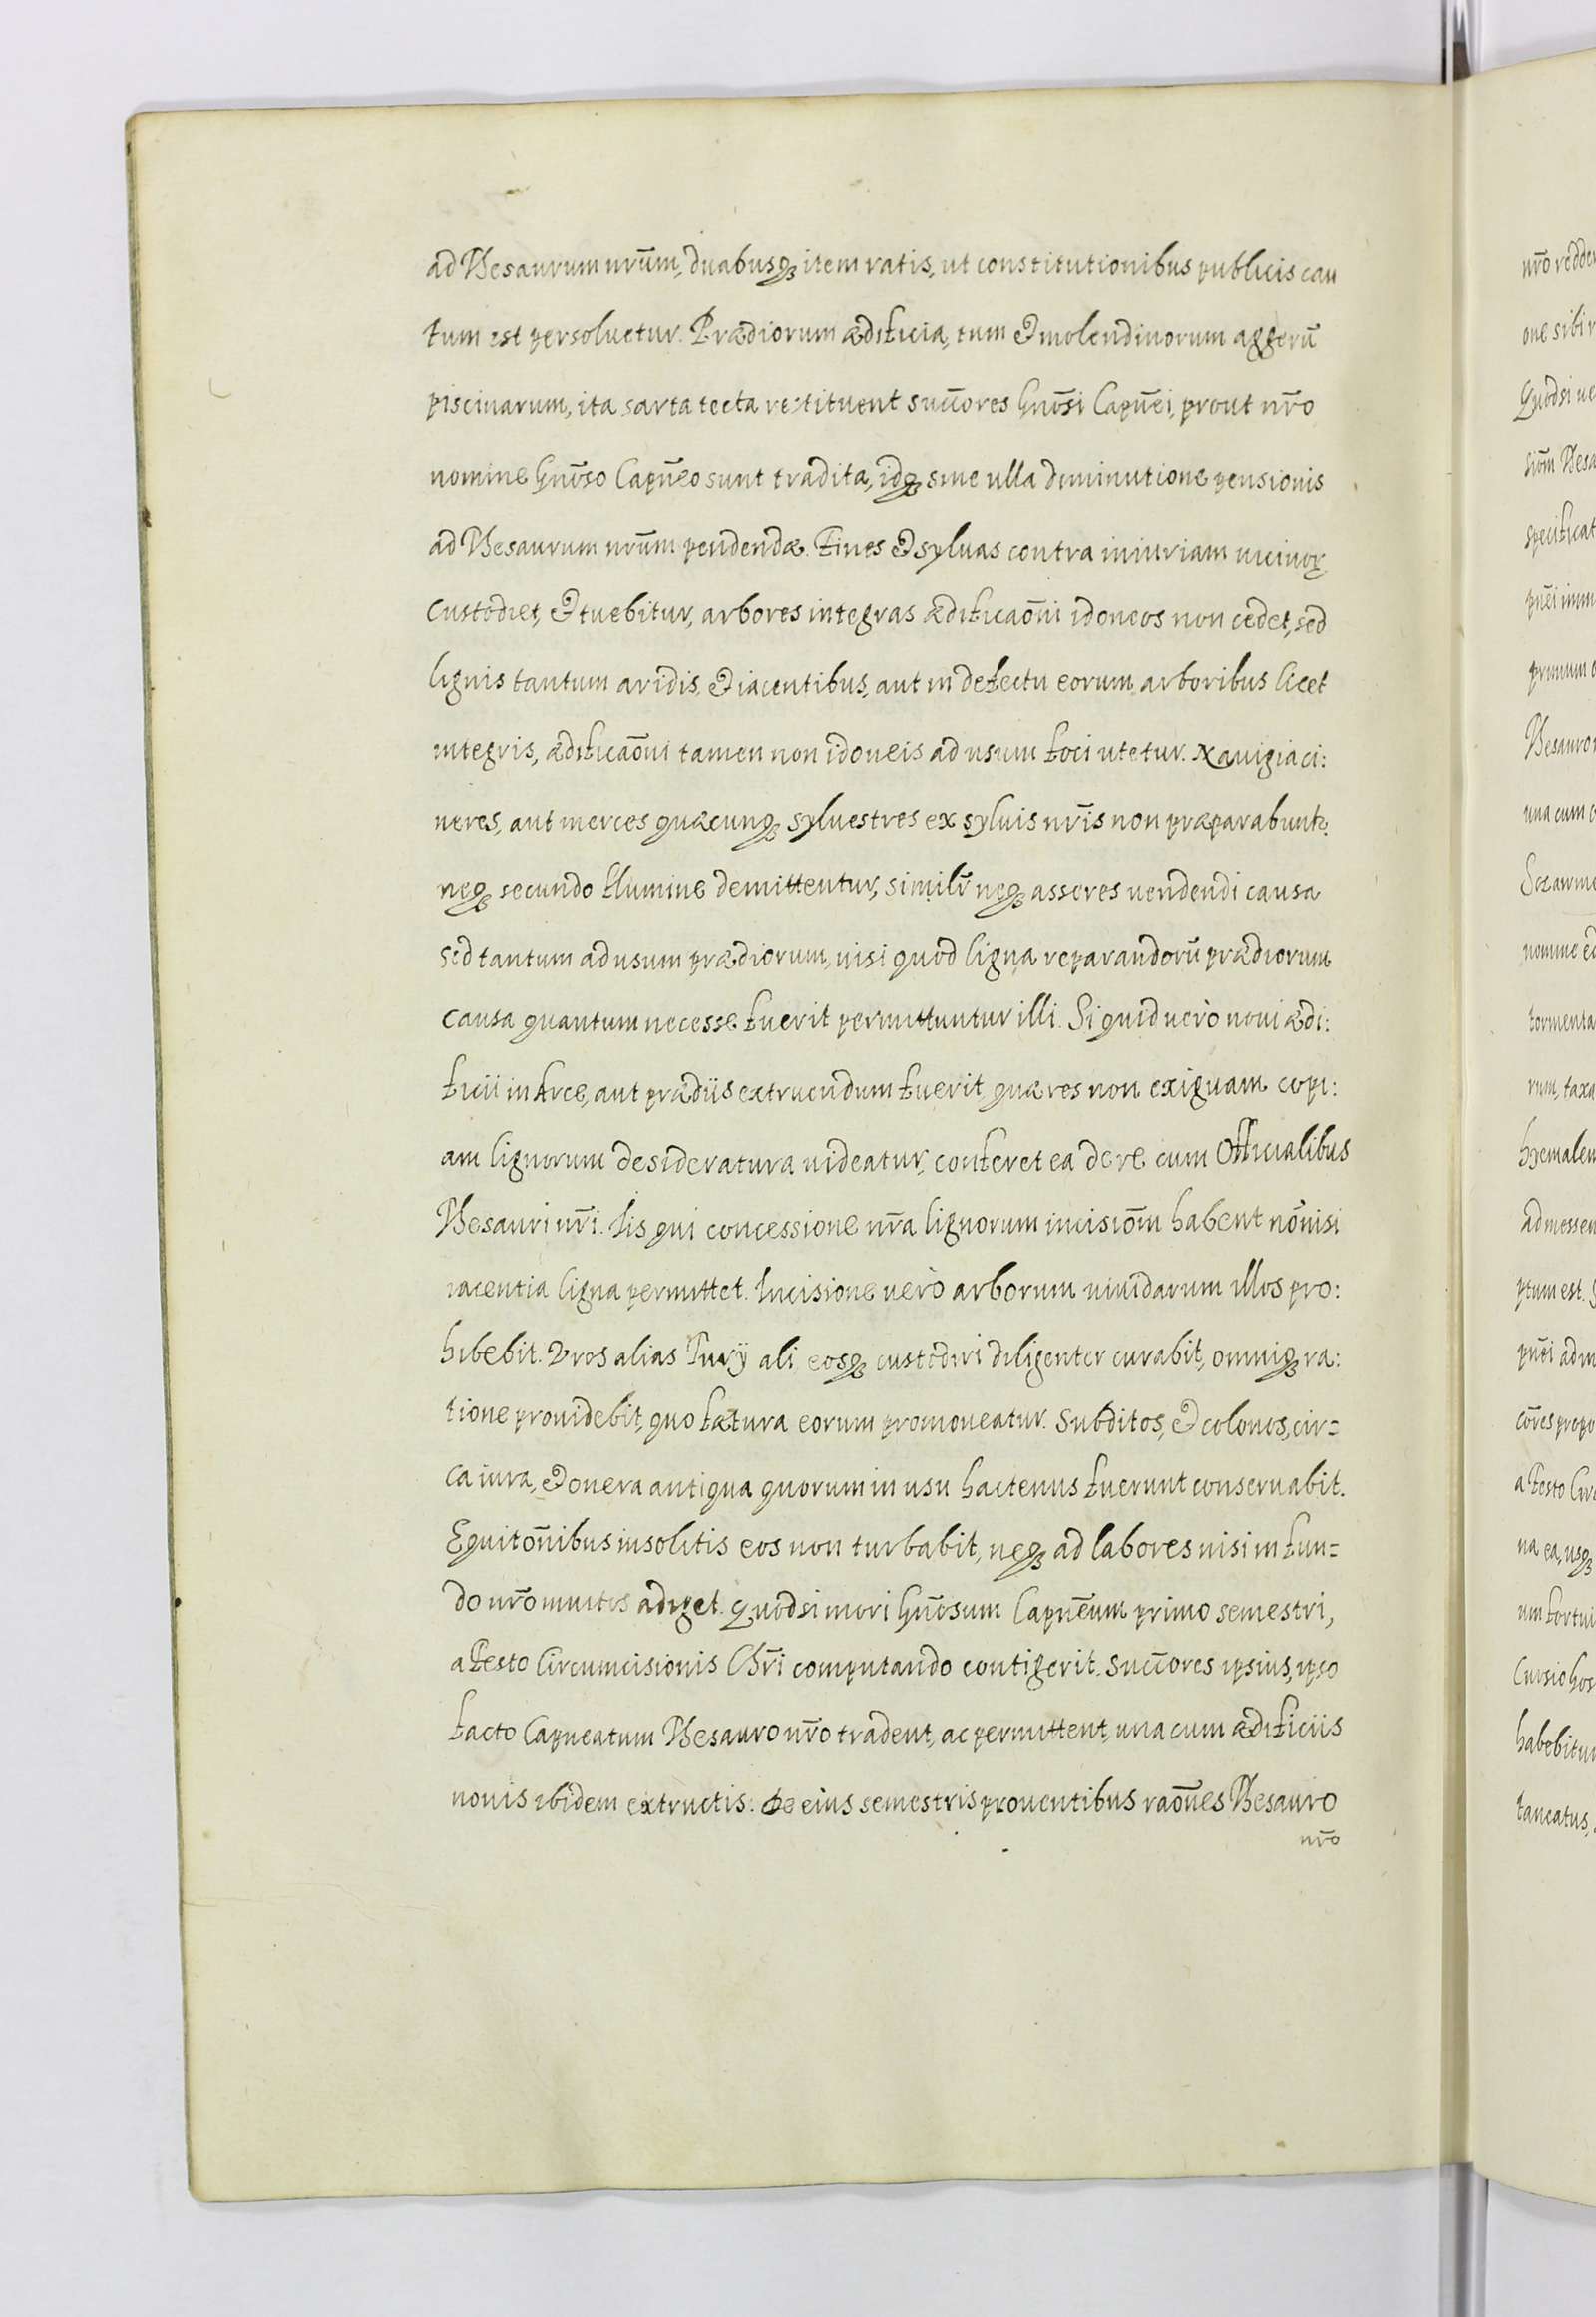 ad Thesaurum nr̄um, duabusq₃ item ratis, ut constitutionibus publicis cau
tum est persoluetur. Prædiorum ædificia, tum & molendinorum aggerū
piscinarum, ita sarta tecta restituent succ̄ores Gn̄osi Capn̄ei, prout nr̄o
nomine Gn̄oso Capn̄eo sunt tradita, idq₃ sine ulla diminutione pensionis
ad Thesaurum nr̄um pendendæ. Fines & syluas contra iniuriam uicinoꝝ
custodiet, & tuebitur, arbores integras ædificaōni idoneos non cedet, sed
lignis tantum aridis, & iacentibus, aut in defectu eorum, arboribus licet
integris, ædificaōni tamen non idoneis ad usum foci utetur. Nauigia ci:
neres, aut merces quæcunq₃ syluestres ex syluis nr̄is non præparabuntꝫ
neq₃ secundo flumine demittentur, similr̄ neq₃ asseres uendendi causa
sed tantum ad usum prædiorum, nisi quod ligna reparandorū prædiorum
causa quantum necesse fuerit permittuntur illi. Si quid uerò noui ædi:
ficii in Arce, aut prædiis extruendum fuerit, quæ res non exiguam copi:
am lignorum desideratura uideatur, conferet ea de re cum Officialibus
Thesauri nr̄i. Iis qui concessione nr̄a lignorum incisiōm habent nōnisi
iacentia ligna permittet. Incisione uerò arborum uiuidarum illos pro:
hibebit. Vros alias Turÿ ali, eosq₃ custodiri diligenter curabit, omniq₃ ra:
tione prouidebit, quo fætura eorum promoueatur. Subditos, & colonos, cir=
ca iura, & onera antiqua quorum in usu hactenus fuerunt conseruabit.
Equitōnibus insolitis eos non turbabit, neq₃ ad labores nisi in fun=
do nr̄o inuitos adiget. Quodsi mori Gn̄osum Capn̄eum primo semestri,
a Festo Circumcisionis Chr̄i computando contigerit. Succ̄ores ipsius, ipso
facto Capneatum Thesauro nr̄o tradent, ac permittent, una cum ædificiis
nouis ibidem extructis. De eius semestris prouentibus raōnes Thesauro
nr̄o